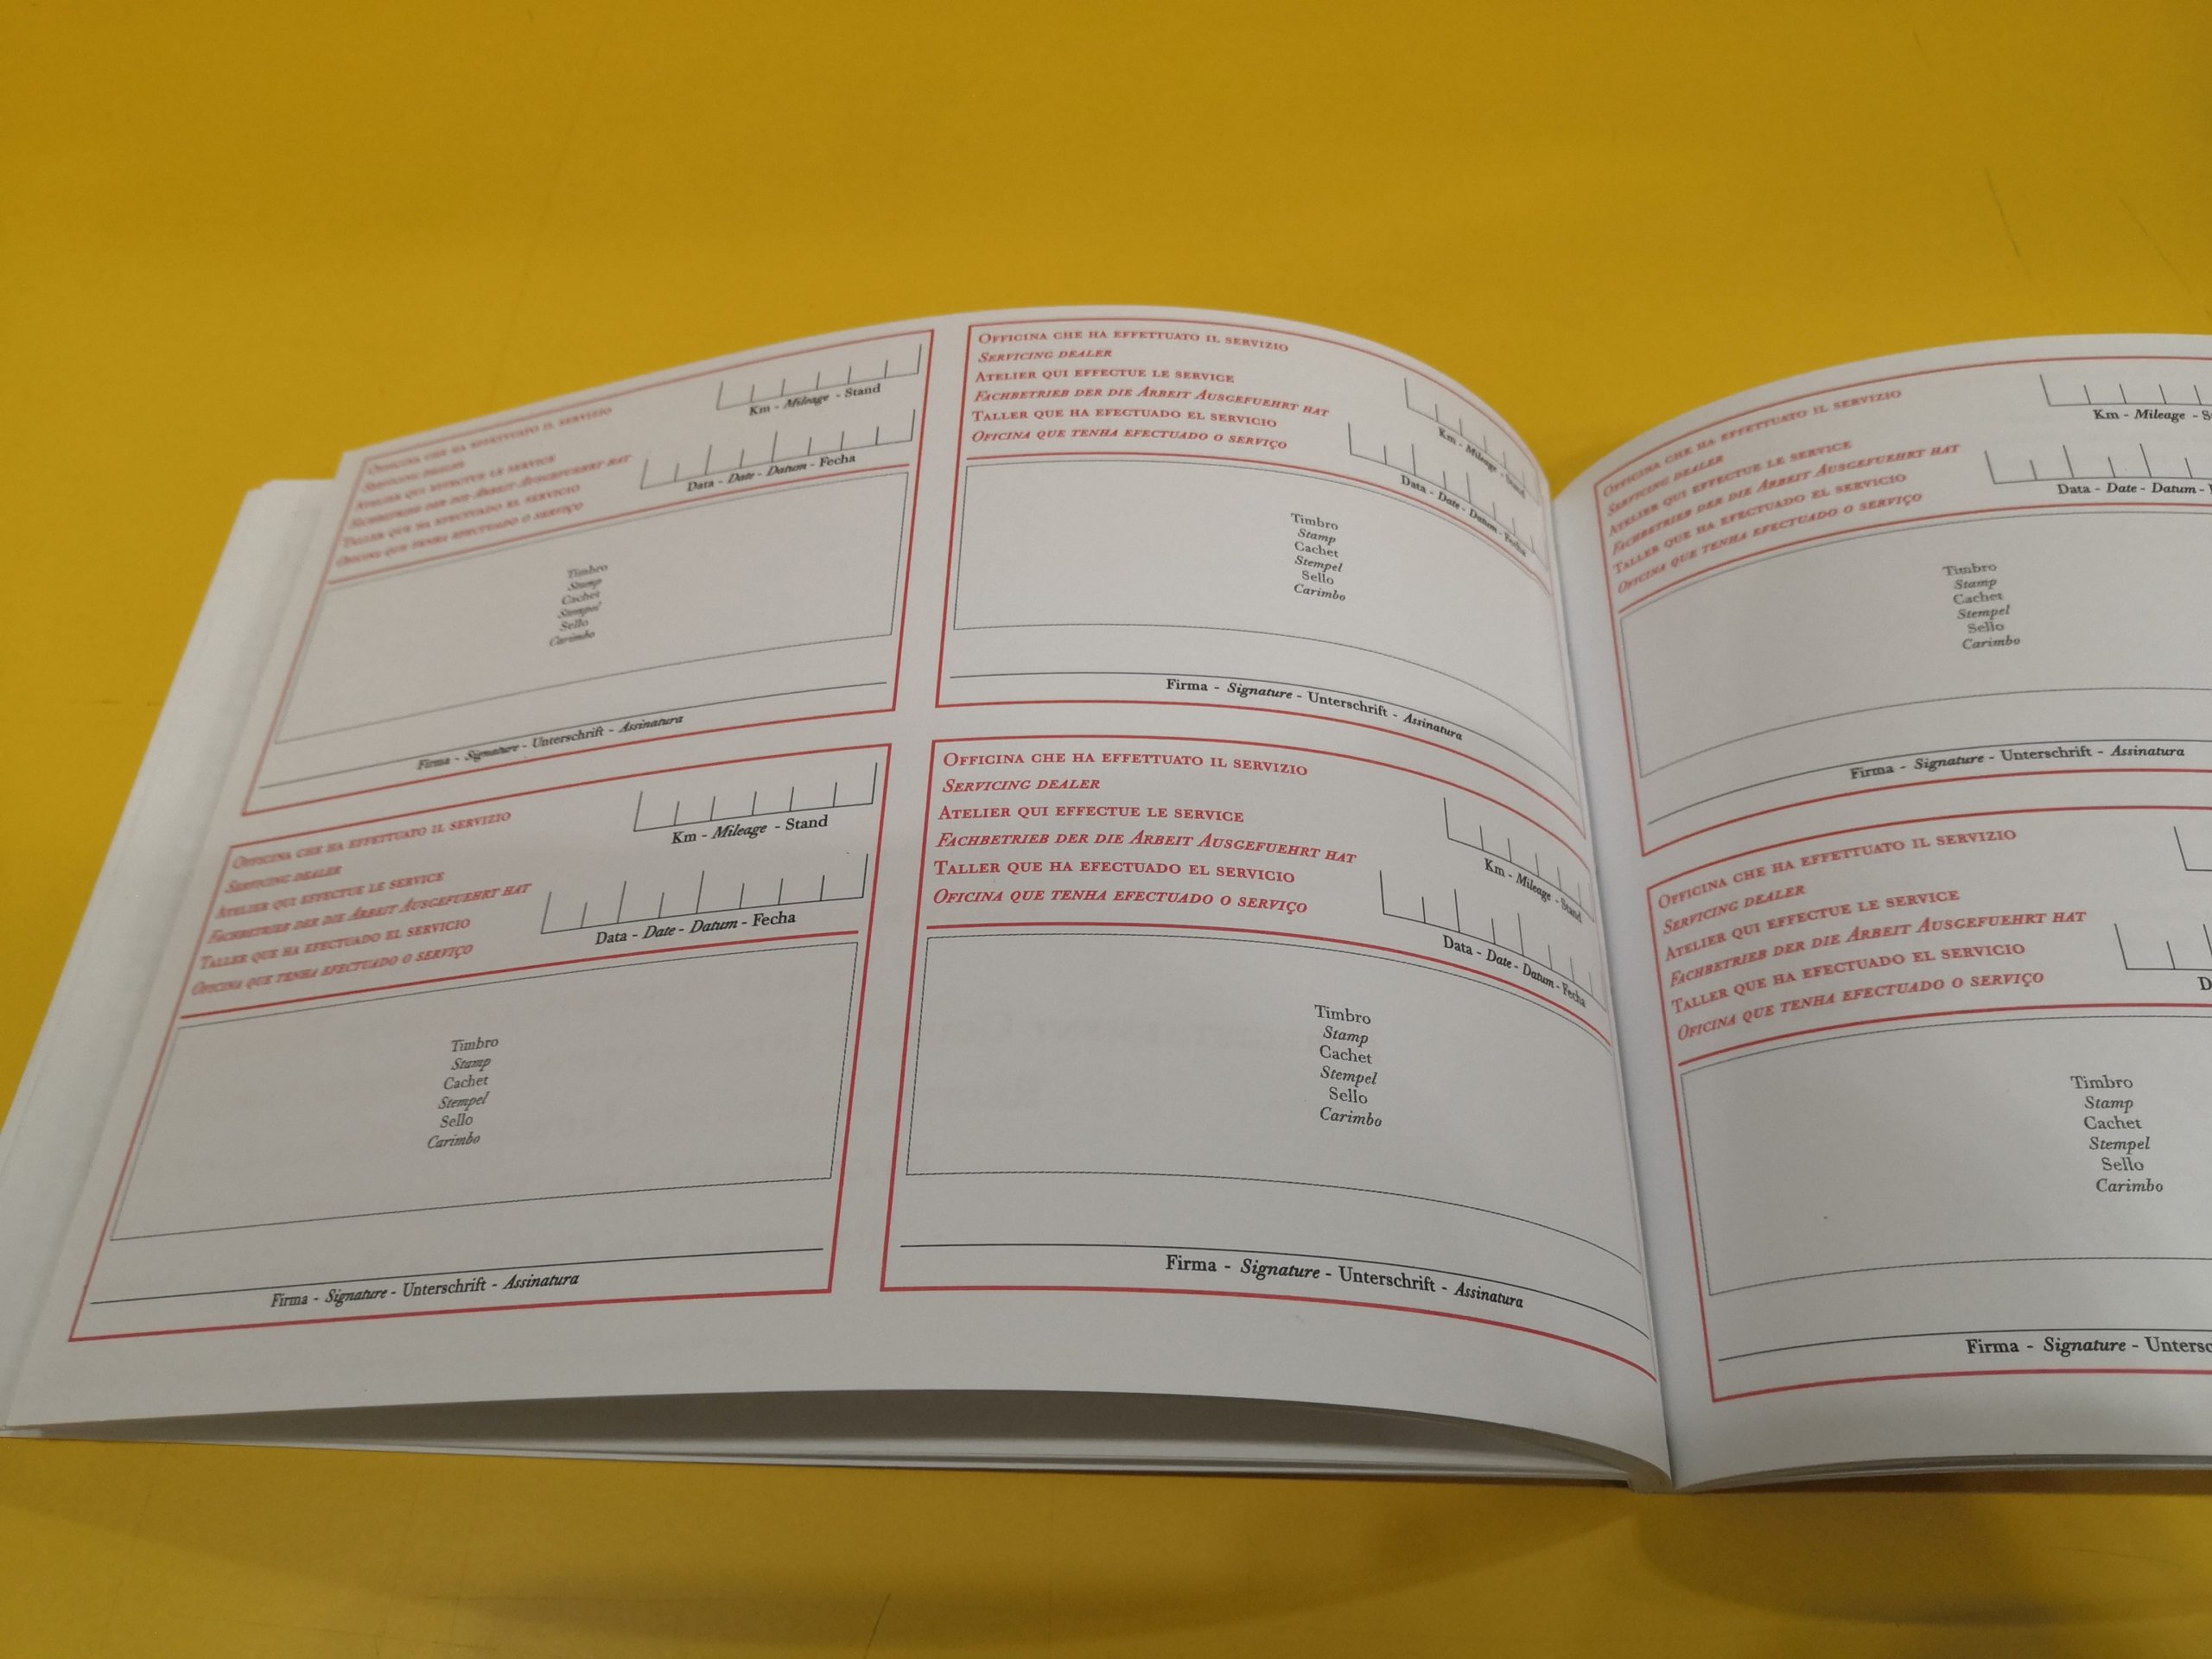 OFFICINA CHE HA EFFETTUATO IL SERVIZIO
SERVICING DEALER
ATELIER QUI EFFECTUE LE SERVICE
FACHBETRIEB DER DIE ARBEIT AUSGEFUEHRT HAT
TALLER QUE HA EFECTUADO EL SERVICIO
OFICINA QUE TENHA EFECTUADO O SERVIÇO
Km - Mileage - Stand
Data - Date - Datum - Fecha
Timbro
Stamp
Cachet
Stempel
Sello
Carimbo
Firma - Signature - Unterschrift - Assinatura
OFFICINA CHE HA EFFETTUATO IL SERVIZIO
SERVICING DEALER
ATELIER QUI EFFECTUE LE SERVICE
FACHBETRIEB DER DIE ARBEIT AUSGEFUEHRT HAT
TALLER QUE HA EFECTUADO EL SERVICIO
OFICINA QUE TENHA EFECTUADO O SERVIÇO
Km - Mileage - Stand
Data - Date - Datum - Fecha
Timbro
Stamp
Cachet
Stempel
Sello
Carimbo
Firma - Signature - Unterschrift - Assinatura
OFFICINA CHE HA EFFETTUATO IL SERVIZIO
SERVICING DEALER
ATELIER QUI EFFECTUE LE SERVICE
FACHBETRIEB DER DIE ARBEIT AUSGEFUEHRT HAT
TALLER QUE HA EFECTUADO EL SERVICIO
OFICINA QUE TENHA EFECTUADO O SERVIÇO
Km - Mileage - Stand
Data - Date - Datum - Fecha
Timbro
Stamp
Cachet
Stempel
Sello
Carimbo
Firma - Signature - Unterschrift - Assinatura
OFFICINA CHE HA EFFETTUATO IL SERVIZIO
SERVICING DEALER
ATELIER QUI EFFECTUE LE SERVICE
FACHBETRIEB DER DIE ARBEIT AUSGEFUEHRT HAT
TALLER QUE HA EFECTUADO EL SERVICIO
OFICINA QUE TENHA EFECTUADO O SERVIÇO
Km - Mileage - Stand
Data - Date - Datum - Fecha
Timbro
Stamp
Cachet
Stempel
Sello
Carimbo
Firma - Signature - Unterschrift - Assinatura
OFFICINA CHE HA EFFETTUATO IL SERVIZIO
SERVICING DEALER
ATELIER QUI EFFECTUE LE SERVICE
FACHBETRIEB DER DIE ARBEIT AUSGEFUEHRT HAT
TALLER QUE HA EFECTUADO EL SERVICIO
OFICINA QUE TENHA EFECTUADO O SERVIÇO
Km - Mileage -
Data - Date - Datum -
Timbro
Stamp
Cachet
Stempel
Sello
Carimbo
Firma - Signature - Unterschrift - Assinatura
OFFICINA CHE HA EFFETTUATO IL SERVIZIO
SERVICING DEALER
ATELIER QUI EFFECTUE LE SERVICE
FACHBETRIEB DER DIE ARBEIT AUSGEFUEHRT HAT
TALLER QUE HA EFECTUADO EL SERVICIO
OFICINA QUE TENHA EFECTUADO O SERVIÇO
Timbro
Stamp
Cachet
Stempel
Sello
Carimbo
Firma - Signature -